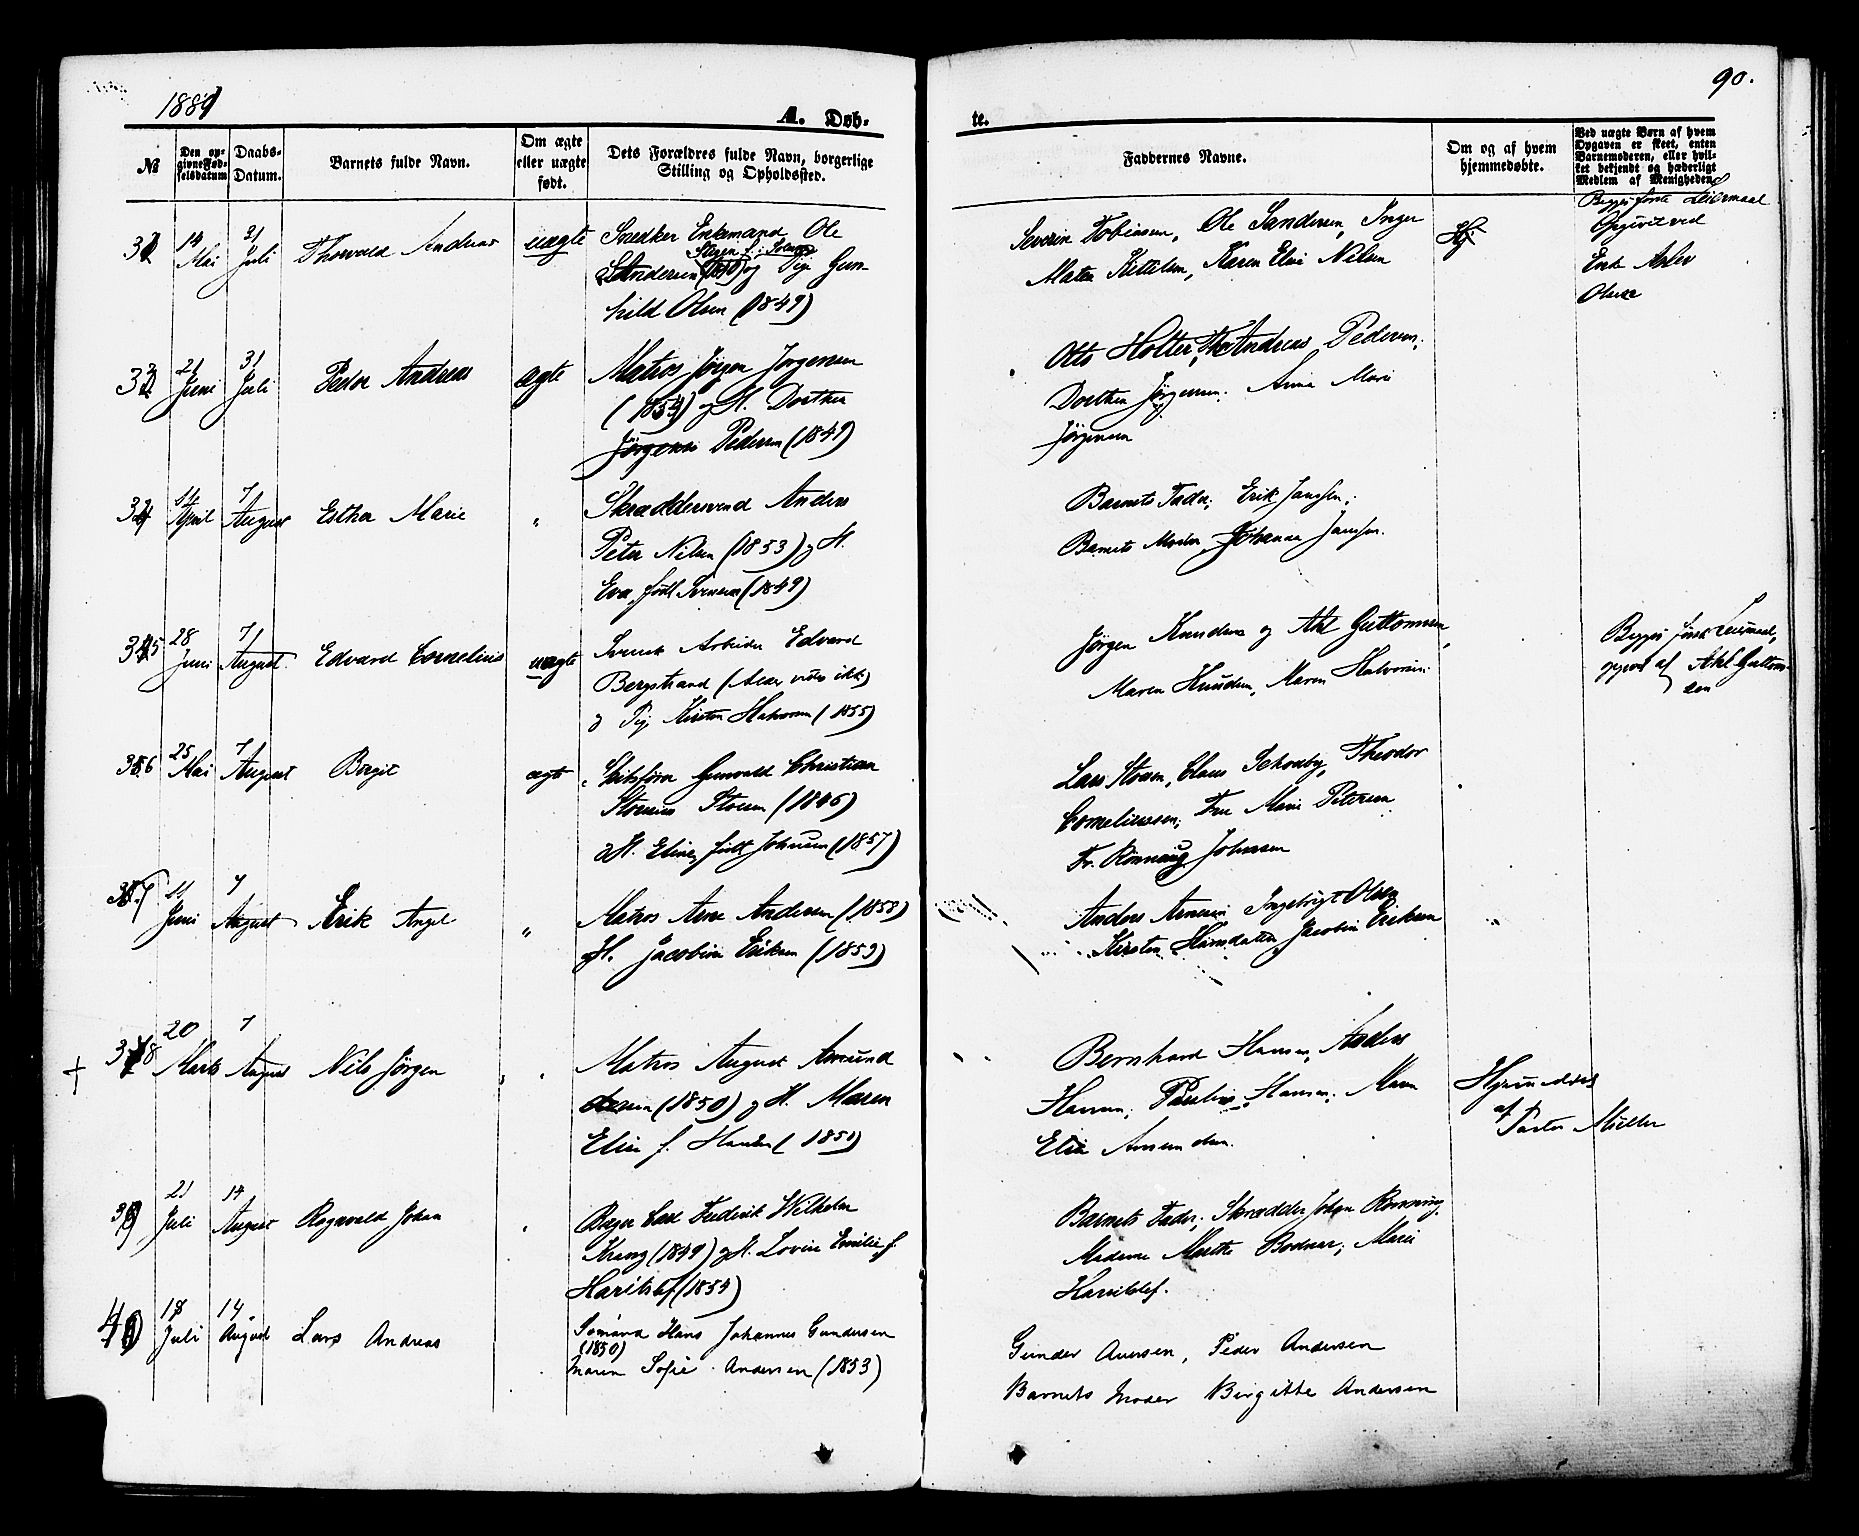 1881
90.
A. Døb-
te.
No
Den op-
givne Fød-
selsdatum
Daabs-
Datum.
Barnets fulde Navn.
Om ægte
eller uægte
født.
Dets Forældres fulde Navn, borgerlige
Stilling og Opholdssted.
Faddernes Navne.
Om og af hvem
hjemmedøbte.
Ved uægte Børn af hvem
Opgaven er skeet, enten
Barnemoderen, eller hvil-
ket bekjendt og hæderligt
Medlem af Menigheden
32 14 Mai 31 Juli Thorvald Andreas uægte
Snedker Enkemand Ole
Andersen og Pige Gun-
hild Olsen (1849)
Severin Tobiassen, Ole Sandersen, Inger
Maten Kittilsen, Karen Elvi Nilsen
Begges første Leiermaal
Opgivet ved
Enke
Olsen
33 21 Juni 31 Juli Peder Andreas ægte
Matros Jørgen Jørgensen
(1854) og H. Dorthea
Jørgensen Pedersen (1849)
Otto Holter, Andreas Pedersen,
Dorthea Jørgensen, Anne Marie
Jørgensen
34 14 April 7 August Esther Marie "
Skræddersvend Anders
Peter Nilsen (1853) og H.
Eva, født (1849)
Barnets Fader, Erik Janssen,
Barnets Moder, Johanna Janssen.
35 28 Juni 7 August Edvard Cornelius uægte
Svensk Arbeider Edvard
Bergstrand (Alder vides ikke)
og Pig. Kirsten Halvorsen (1855)
Jørgen Knudsen og Aksl Guttormsen,
Maren Knudsen, Maren Halvorsen
Begges første Leiermaal,
opgivet af Aksl Guttorm-
sen
36 25 Mai 7 August Borgit ægte
Skibsfører Gunvald Christian
Stousen (1846)
og H. Eline, født Johnsen (1857)
Lars Stousen, Claus Schouby, Theodor
Corneliussen, Frue Marie Petersen
Fr. Rønnaug Johnsen
37 11 Juni 7 August Erik Angel "
Matros Arne Andersen (1858)
og H. Jacobine Eriksen (1859)
Anders Arnesen, Ingebrigt Olsen
Kirsten Hansdatter, Jacobine Eriksen
+ 38 20 Marts 7 August Nils Jørgen
Matros August Amund
sen (1850) og H. Maren
Elise f. Hansen (1851)
Bernhard Hansen, Anders
Hansen, Pauline Hansen, Maren
Elise Amundsen.
Hjemmedøbt
af
Pastor Müller
39 21 Juli 14 August Ragnvald Johan
Bager Carl Frederik Wilhelm
Krang (1849) og H. Lovise Emilie f.
(1854)
Barnets Fader, Skrædder Johan Rønning,
Madame Marthe Bodnar, Marie
40 18 Juli 14 August Lars Andreas
Sømand Hans Johannes Gundersen
(1850)
Maren Sofie Andersen (1853)
Gunder Aversen, Peder Andersen
Barnets Moder Birgitte Andersen